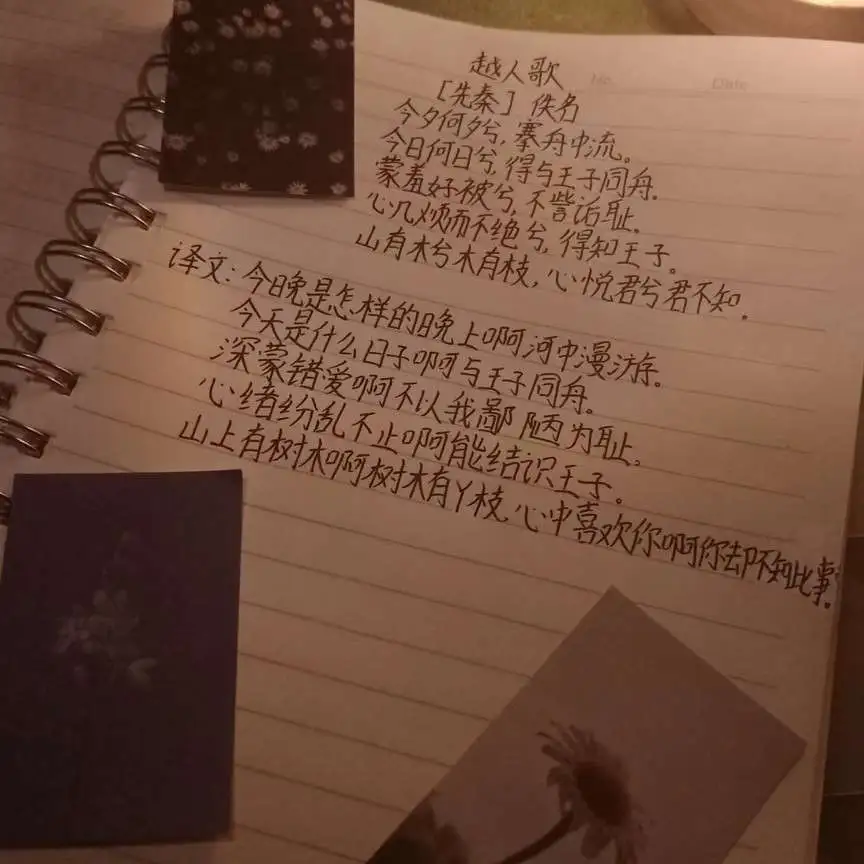 No.
Date
越人歌
［先秦］ 佚名
今夕何夕兮，搴舟中流。
今日何日兮，得与王子同舟。
蒙羞好被兮，不訾诟耻。
心几烦而不绝兮，得知王子。
山有木兮木有枝，心悦君兮君不知。
译文：今晚是怎样的晚上啊河中漫游。
今天是什么日子啊与王子同舟。
深蒙错爱啊不以我鄙陋为耻。
心绪纷乱不止啊能结识王子。
山上有树木啊树木有丫枝，心中喜欢你啊你却不知此事。